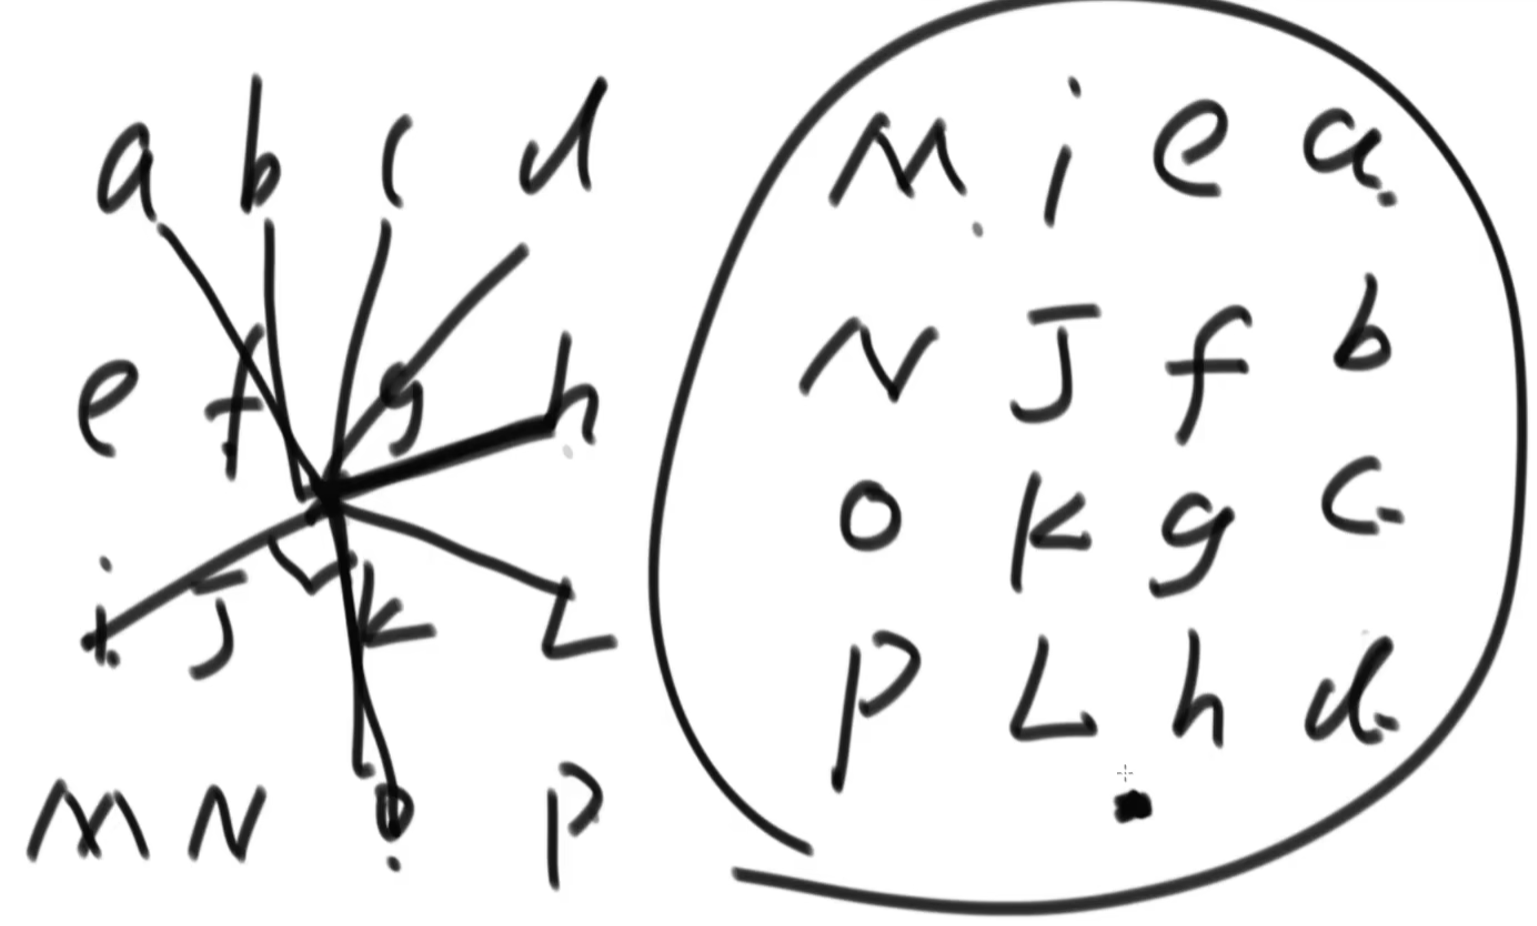 a b c d
e f g h
i J K L
M N O P
M i e a
N J f b
O K g c
P L h d